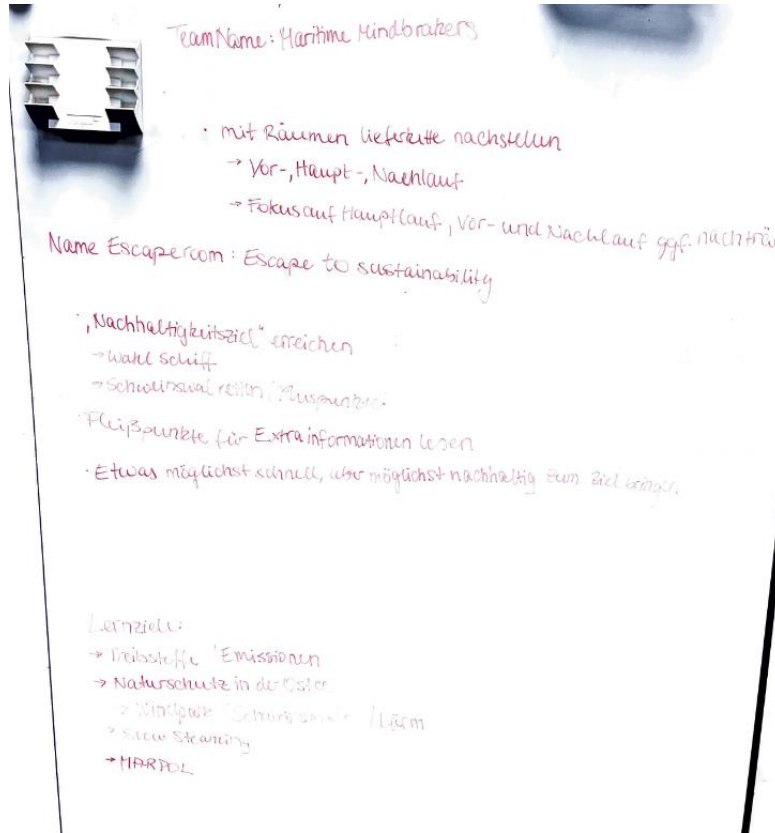 TeamName: Maritime Mindbrakers
· mit Räumen lieferkette nachstellen
→ Vor-, Haupt-, Nachlauf
→ Fokus auf Hauptlauf, Vor- und Nachlauf ggf.
Name Escaperoom: Escape to sustainability
· „Nachhaltigkeitsziel" erreichen
→ Wahl Schiff
→ Schweinswal retten
Fleißpunkte für Extrainformationen lesen
· Etwas möglichst schnell, aber möglichst nachhaltig zum Ziel bringen
Lernziele:
→ Treibstoffe Emissionen
→ Naturschutz in der
→ Windpark / Lärm
→ Slow Steaming
→ MARPOL